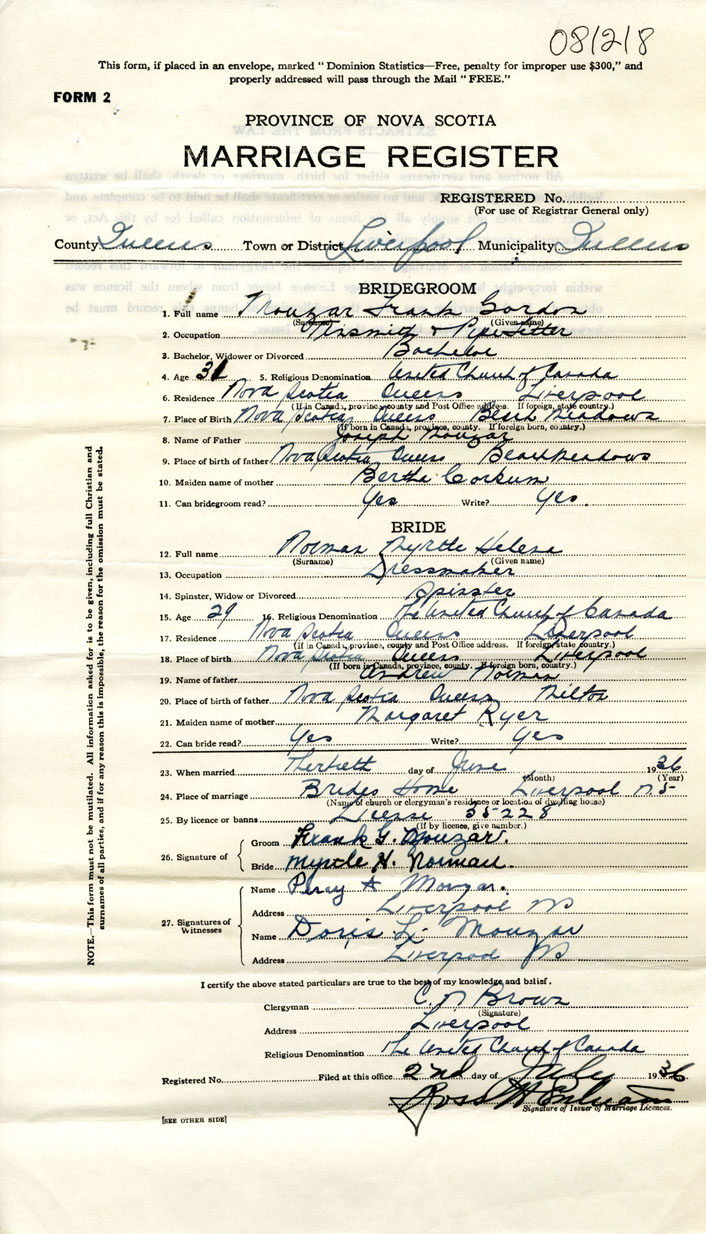 081218
This form, if placed in an envelope, marked "Dominion Statistics—Free, penalty for improper use $300," and
properly addressed will pass through the Mail "FREE."
FORM 2
PROVINCE OF NOVA SCOTIA
MARRIAGE REGISTER
REGISTERED No.
(For use of Registrar General only)
County Queens Town or District Liverpool Municipality Queens
BRIDEGROOM
1. Full name Mouzar Frank Gordon
(Surname) (Given name)
2. Occupation Tinsmith & Pipefitter
3. Bachelor, Widower or Divorced Bachelor
4. Age 31 5. Religious Denomination United Church of Canada
6. Residence Nova Scotia Queens Liverpool
(If in Canada, province, county and Post Office address. If foreign, state country.)
7. Place of Birth Nova Scotia Queens Beach Meadows
(If born in Canada, province, county. If foreign born, country.)
8. Name of Father Joseph Mouzar
9. Place of birth of father Nova Scotia Queens Beach Meadows
10. Maiden name of mother Bertha Corkum
11. Can bridegroom read? Yes Write? Yes.
BRIDE
12. Full name Norman Myrtle Helena
(Surname) (Given name)
13. Occupation Dressmaker
14. Spinster, Widow or Divorced Spinster
15. Age 29 16. Religious Denomination The United Church of Canada
17. Residence Nova Scotia Queens Liverpool
(If in Canada, province, county and Post Office address. If foreign, state country.)
18. Place of birth Nova Scotia Queens Liverpool
(If born in Canada, province, county. If foreign born, country.)
19. Name of father Andrew Norman
20. Place of birth of father Nova Scotia Queens Milton
21. Maiden name of mother Margaret Ryer
22. Can bride read? Yes Write? Yes
23. When married Thirtieth day of June 1936
(Month) (Year)
24. Place of marriage Brides Home Liverpool NS
(Name of church or clergyman's residence or location of dwelling house)
25. By licence or banns License 35228
(If by licence, give number.)
26. Signature of
Groom Frank G. Mouzar.
Bride Myrtle H. Norman.
27. Signatures of Witnesses
Name Percy A Mouzar.
Address Liverpool NS
Name Doris L. Mouzar
Address Liverpool NS
I certify the above stated particulars are true to the best of my knowledge and belief.
Clergyman C. N Brown
(Signature)
Address Liverpool
Religious Denomination The United Church of Canada
Registered No. Filed at this office 2nd day of July 1936
Ross H
Signature of Issuer of Marriage Licences.
[SEE OTHER SIDE]
NOTE.—This form must not be mutilated. All information asked for is to be given, including full Christian and
surnames of all parties, and if for any reason this is impossible, the reason for the omission must be stated.